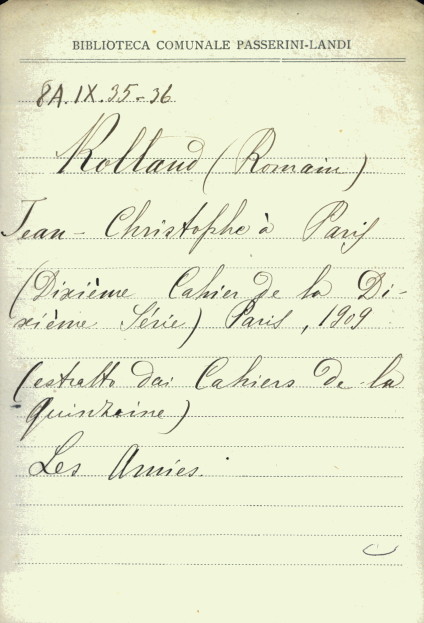 BIBLIOTECA COMUNALE PASSERINI-LANDI
8A.IX.35-36
Rolland (Romain)
Jean-Christophe à Paris
(Dixième Cahier de la Di-
xième Série) Paris, 1909
(estratto dai Cahiers de la
Quinzaine)
Les Amies.